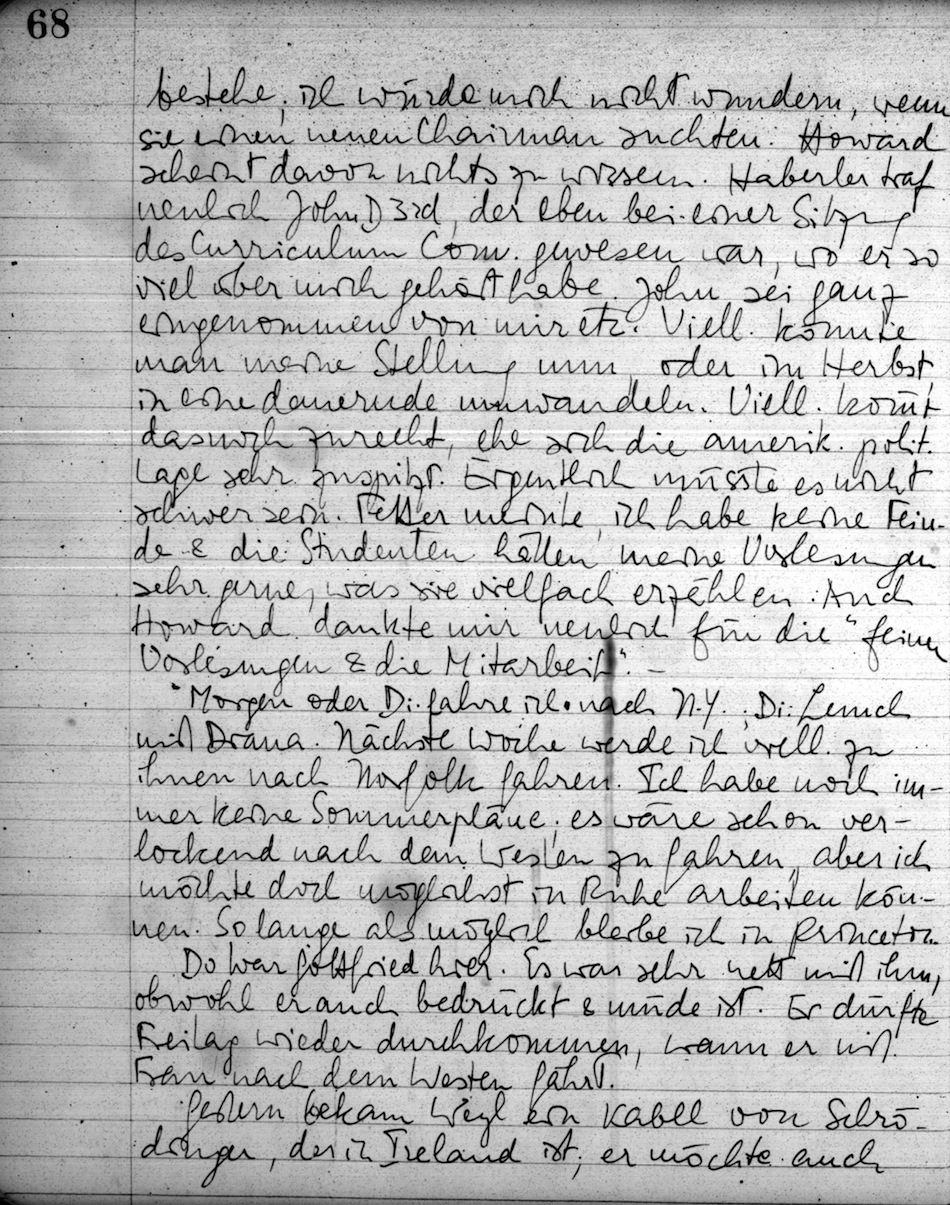 68
bestehe; ich würde mich nicht wundern, wenn
sie einen neuen Chairman suchten. Howard
scheint davon nichts zu wissen. Haberler traf
neulich John D 3rd, der eben bei einer Sitzung
des Curriculum Com. gewesen war, wo er so
viel über mich gehört habe. John sei ganz
eingenommen von mir etc. Viell. könnte
man meine Stellung nun, oder im Herbst,
in eine dauernde umwandeln. Viell. kommt
das noch zurecht, ehe sich die amerik. polit.
Lage sehr zuspitzt. Eigentlich müsste es nicht
schwer sein. Fetter meinte, ich habe keine Fein-
de & die Studenten hätten meine Vorlesungen
sehr gerne, was sie vielfach erzählen. Auch
Howard dankte mir neulich für die "feinen
Vorlesungen & die Mitarbeit". –
Morgen oder Di. fahre ich nach N.Y.; Di. Lunch
mit Diana. Nächste Woche werde ich viell. zu
ihnen nach Norfolk fahren. Ich habe noch im-
mer keine Sommerpläne; es wäre schon ver-
lockend nach dem Westen zu fahren, aber ich
möchte doch möglichst in Ruhe arbeiten kön-
nen. So lange als möglich bleibe ich in Princeton.
Do war Gottfried hier. Es war sehr nett mit ihm,
obwohl er auch bedrückt & müde ist. Er dürfte
Freitag wieder durchkommen, wann er mit
Frau nach dem Westen fährt.
Gestern bekam Weyl ein Kabel von Schrö-
dinger, der in Ireland ist; er möchte auch